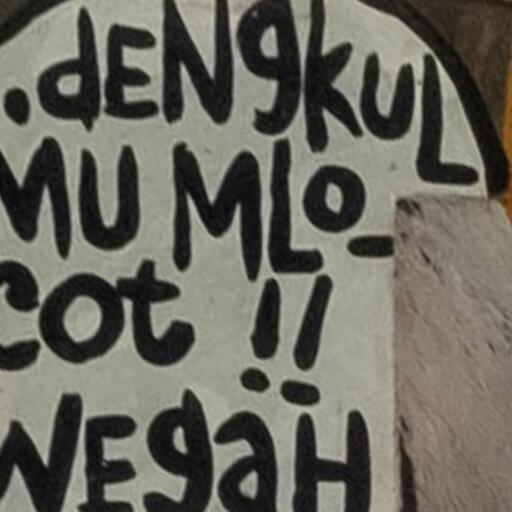 .dENgkUL
MU MLO-
cot !!
WEgaH